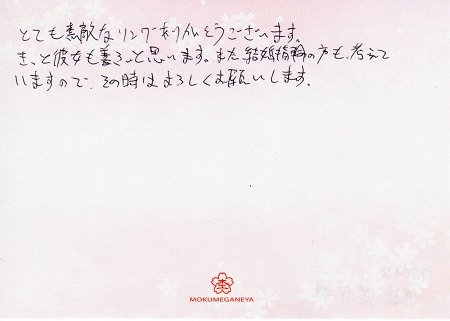 とても素敵なリングありがとうございます。
きっと彼女も喜ぶと思います。また結婚指輪の方も、考えて
いますので、その時はよろしくお願いします。
MOKUMEGANEYA